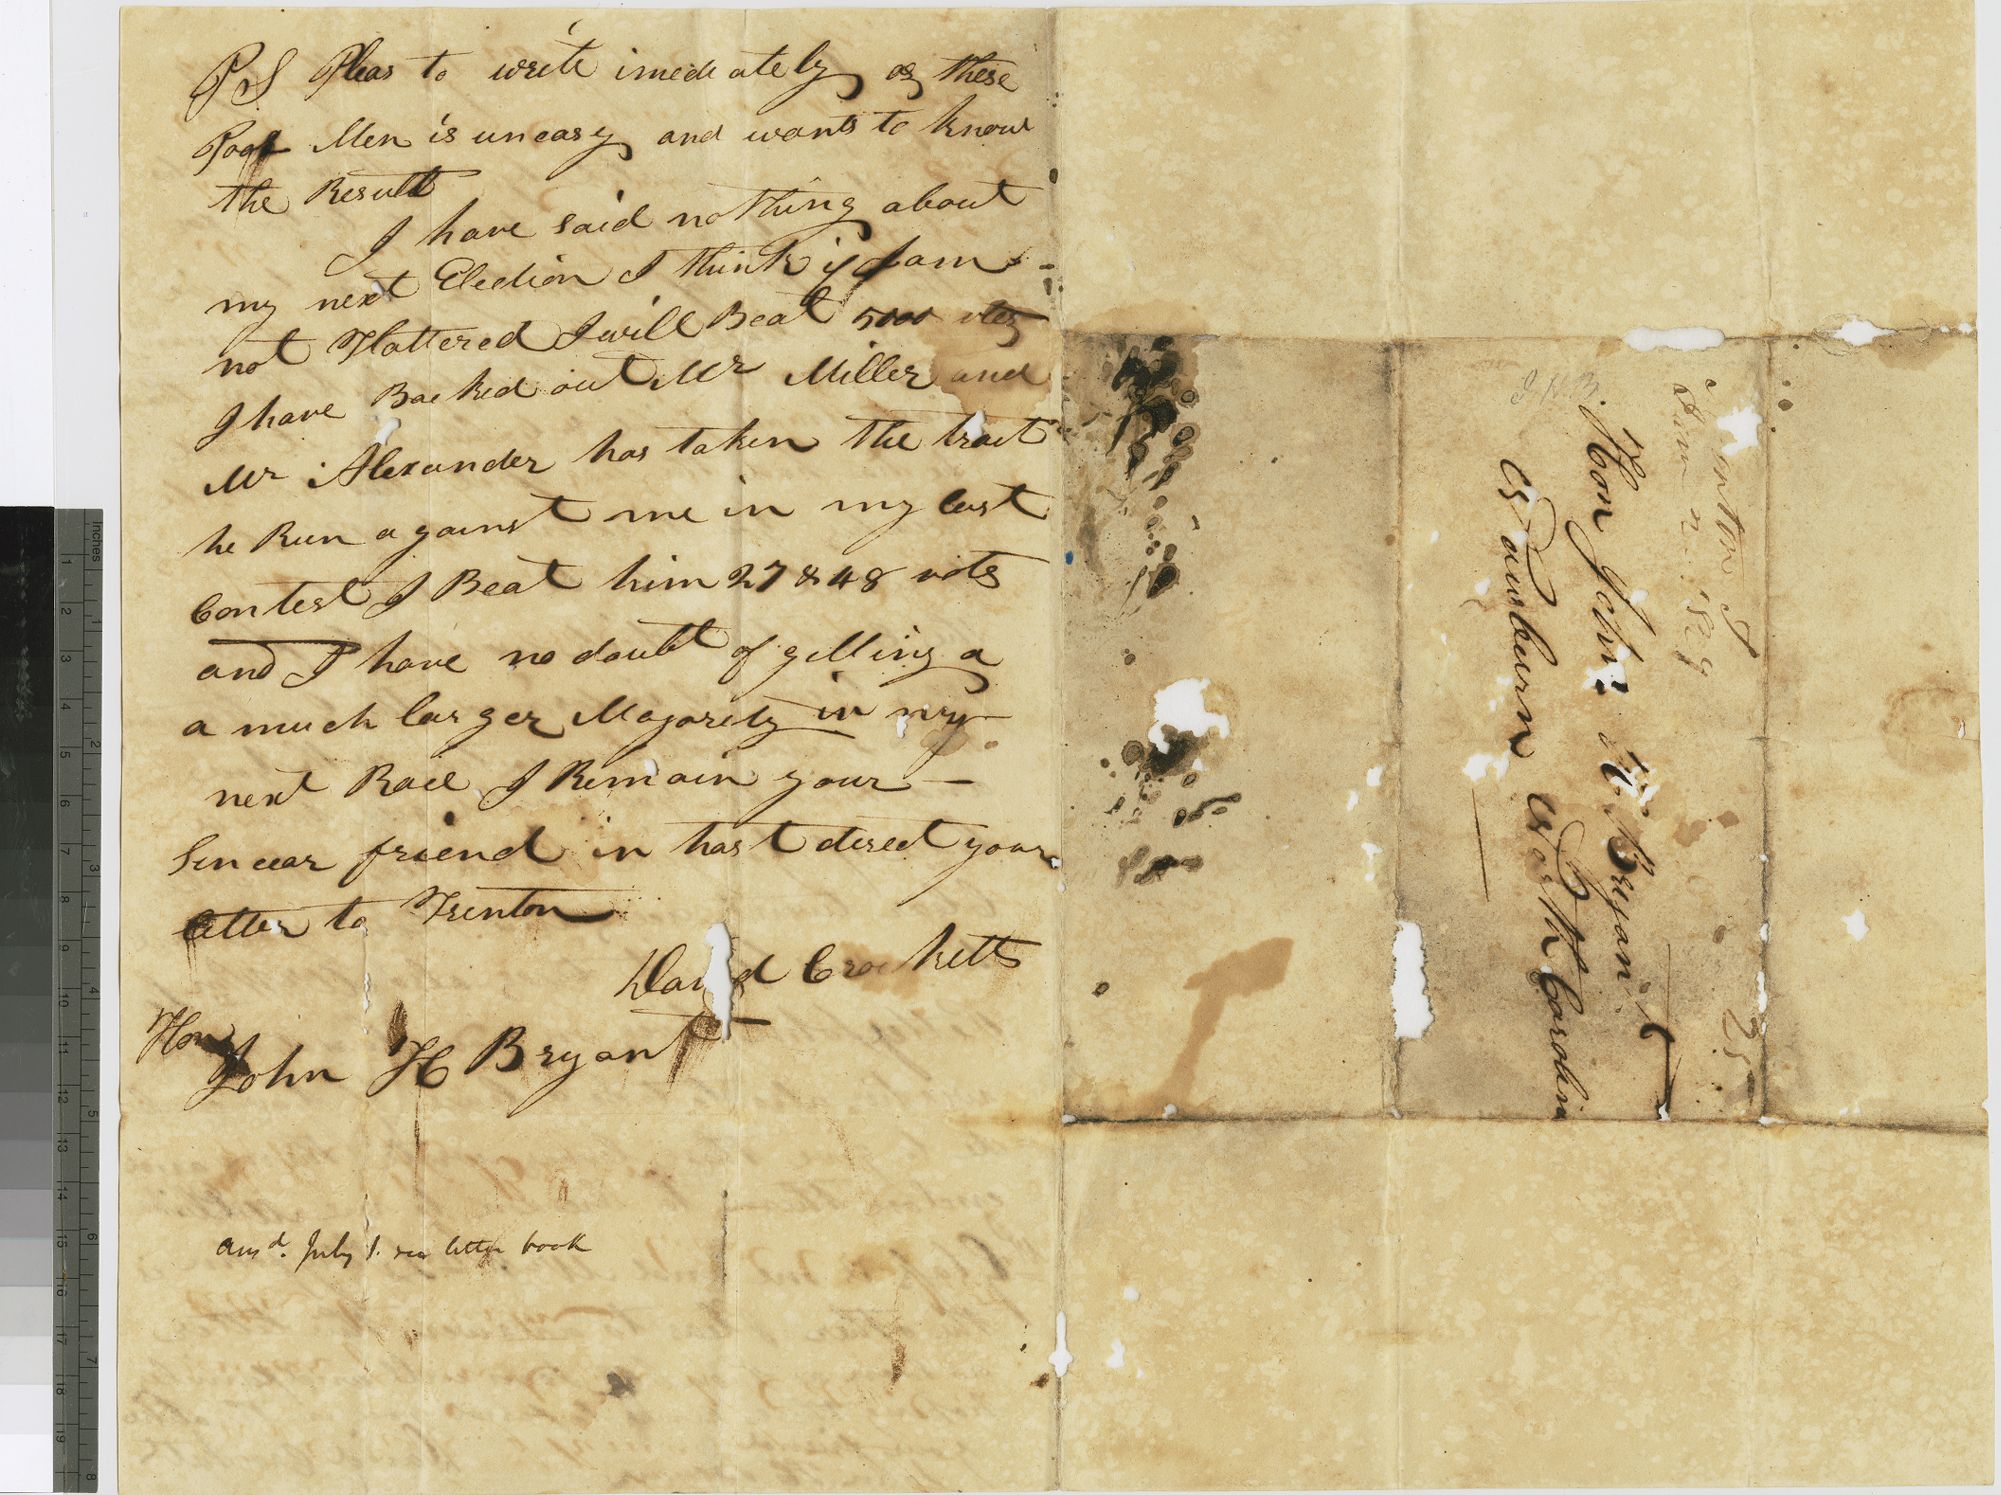 PS Pleas to write imediately as these
Poor Men is uneasy and wants to know
the Result
I have said nothing about
my next Election I think if I am
not Flattered I will Beat 5000 votes
I have Backed out Mr Miller and
Mr Alexander has taken the tract
he Run against me in my last
Contest I Beat him 27 & 48 vots
and I have no doubt of gitting a
a much larger Majority in my
next Race I Remain your —
Sincear friend in hast direct your
letter to Trenton
David Crockett
Hon
John H Bryant
ansd. July 1. see letter book
J H B
25
Hon John H. Bryan
Newbern North Carolina
inches
1 2 3 4 5 6 7 8
1 2 3 4 5 6 7 8 9 10 11 12 13 14 15 16 17 18 19